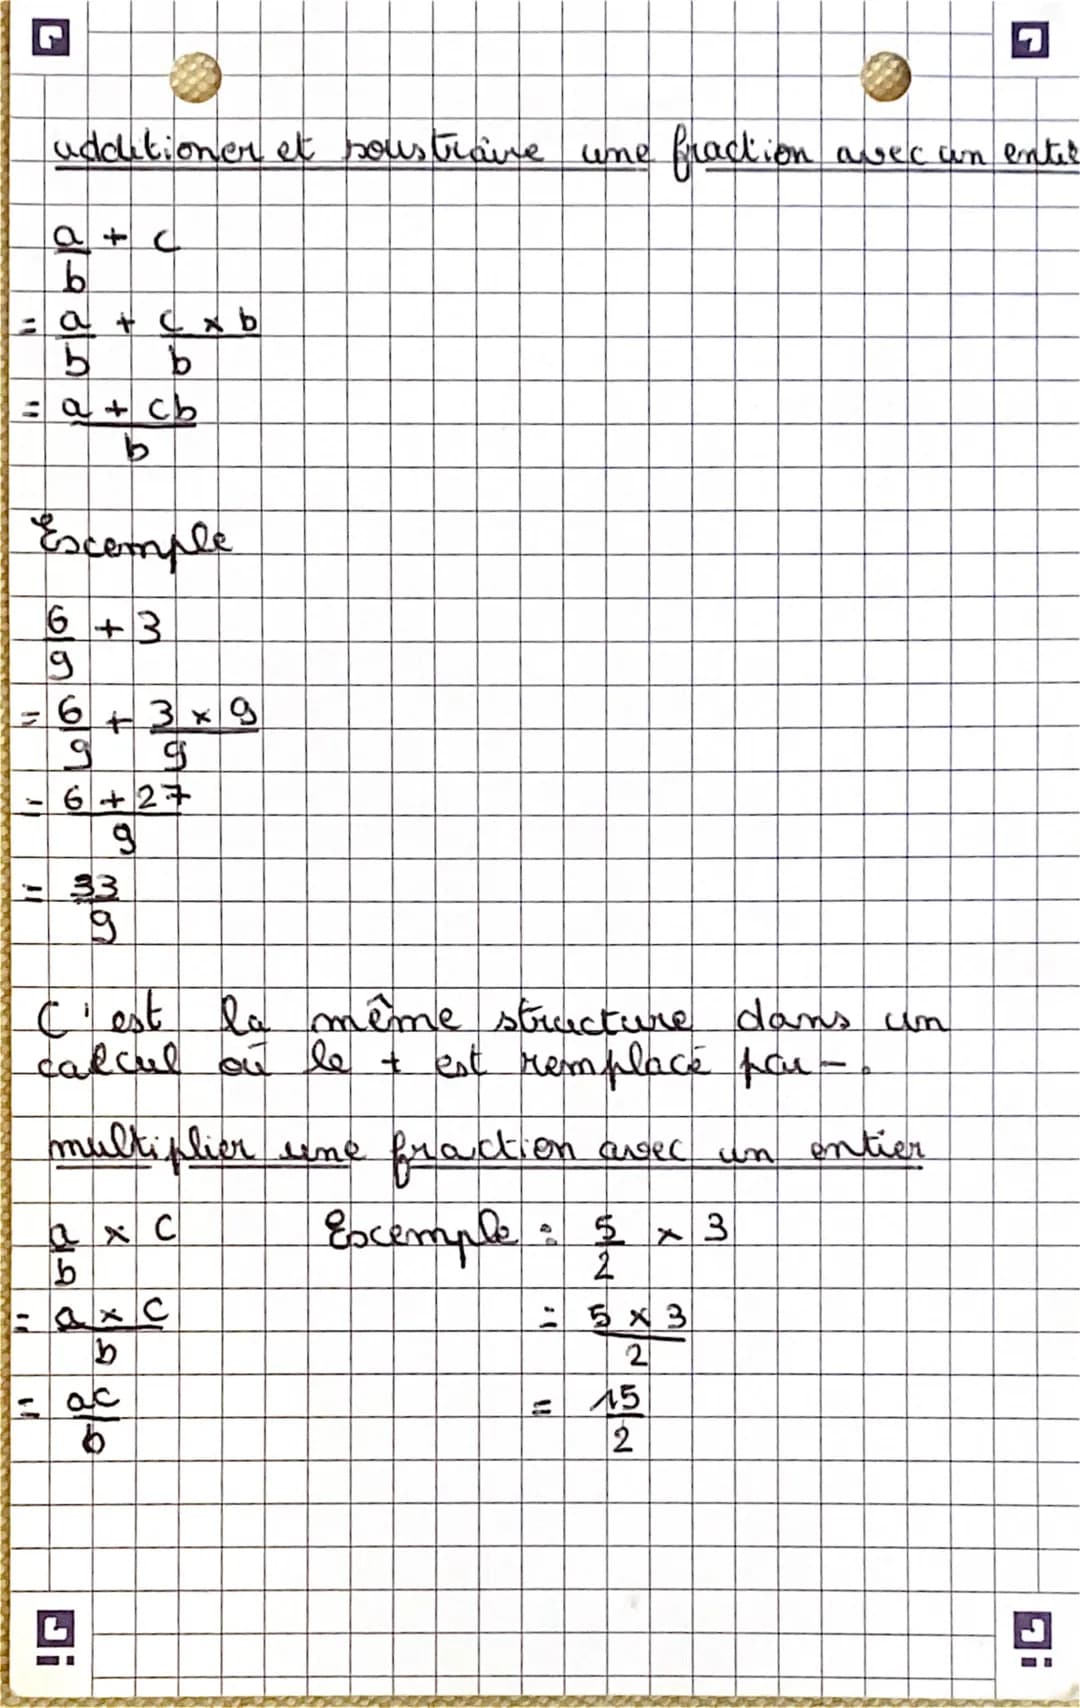 additioner et soustraire une fraction avec un entie
a/b + c
= a/b + c × b/b
= a + cb/b
Escemple
6/9 + 3
= 6/9 + 3 × 9/9
= 6 + 27/9
= 33/9
C'est la même structure dans un
calcul où le + est remplacé par -.
multiplier une fraction avec un entier
a/b × c Escemple : 5/2 × 3
= a × c/b = 5 × 3/2
= ac/b = 15/2